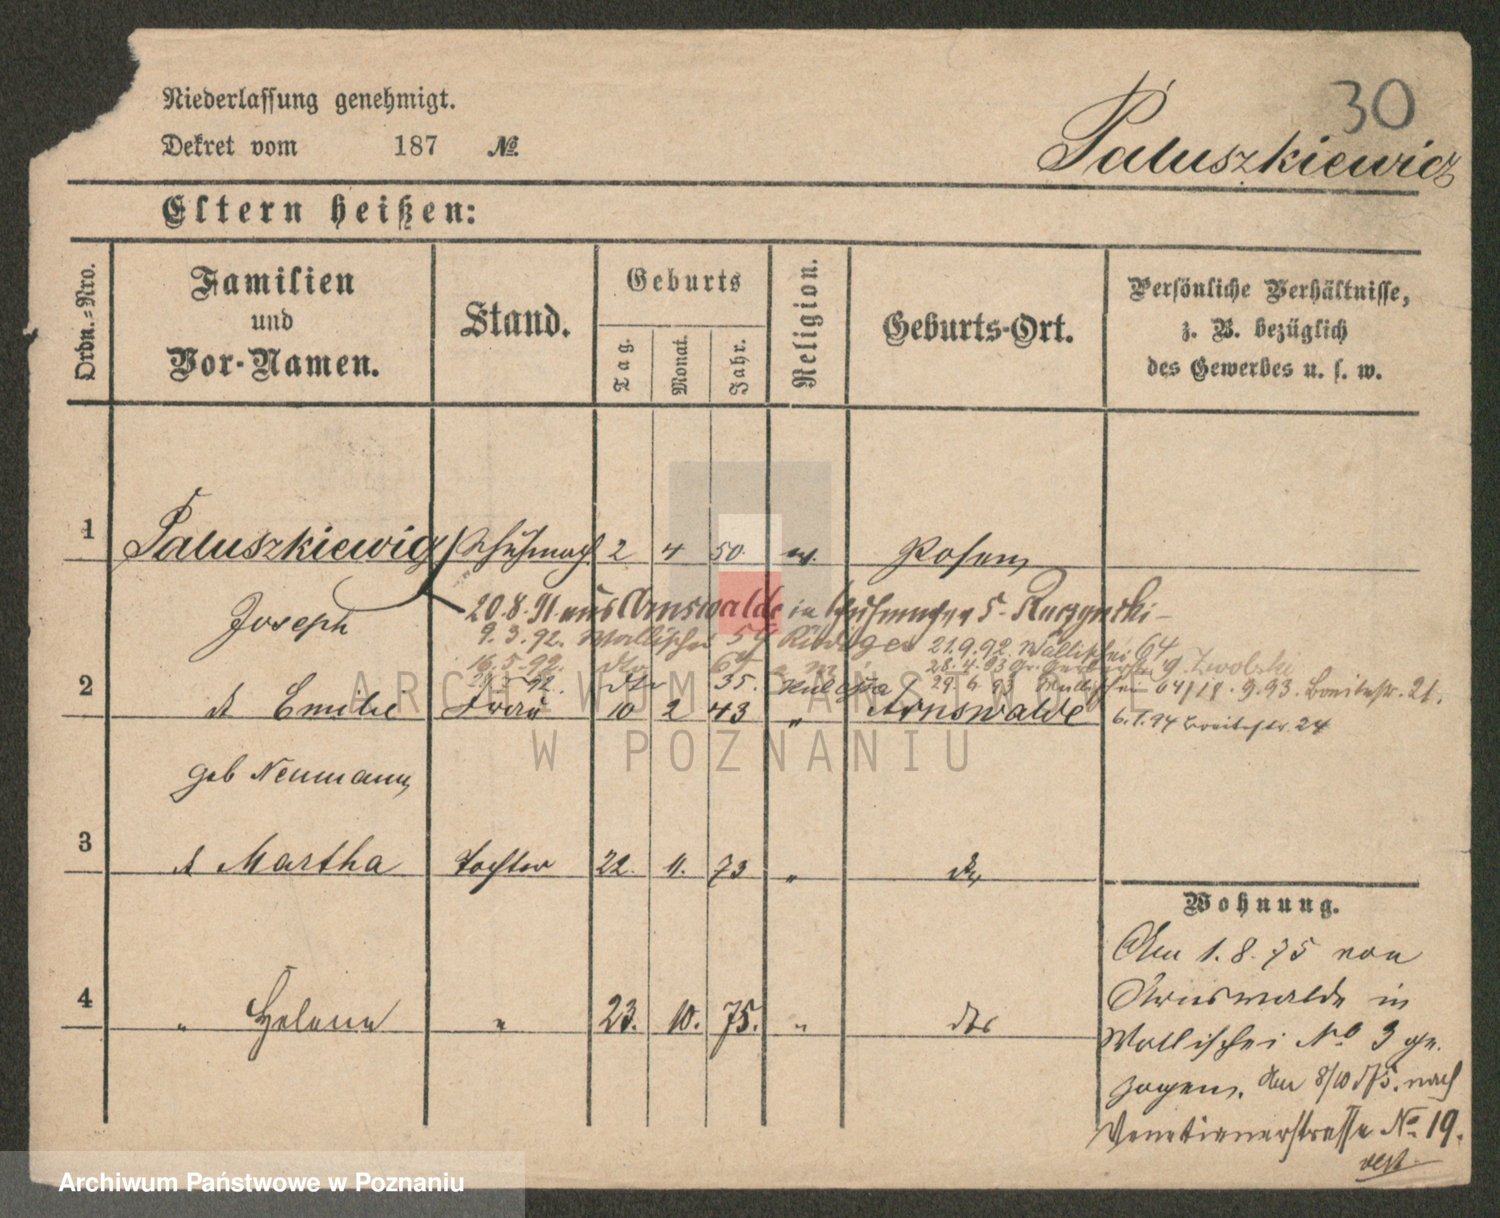 30
Niederlassung genehmigt.
Dekret vom 187 №
Paluszkiewicz
Eltern heißen:
Ordn.-Nro.
Familien und Vor-Namen.
Stand.
Geburts
Tag.
Monat.
Jahr.
Religion.
Geburts-Ort.
Persönliche Verhältnisse, z. B. bezüglich des Gewerbes u. s. w.
1 Paluszkiewicz Schuhmach 2 4 50. Posen
Joseph
20.8.91 aus Arnswalde in
9.3.92. Wallischei 54 Rüdiger 21.9.92 Wallischei 64
16.5.92. 28.4.93 Zwolski
92. 35. 29.6.93 Wallischei 64/18.9.93. Breitestr. 21.
2 d Emilie Frau 10 2 43 " Arnswalde 6.1.94 Breitestr. 24
geb Neumann
3 d Martha Tochter 22. 11. 73 "
Wohnung.
Am 1.8.75 von
Arnswalde in
4 " Helene " 23. 10. 75. " dts
Wallischei No 3 ge
zogen. Am 8/10 75. nach
Venetianerstrasse No 19.
ARCHIWUM PAŃSTWOWE
W POZNANIU
Archiwum Państwowe w Poznaniu